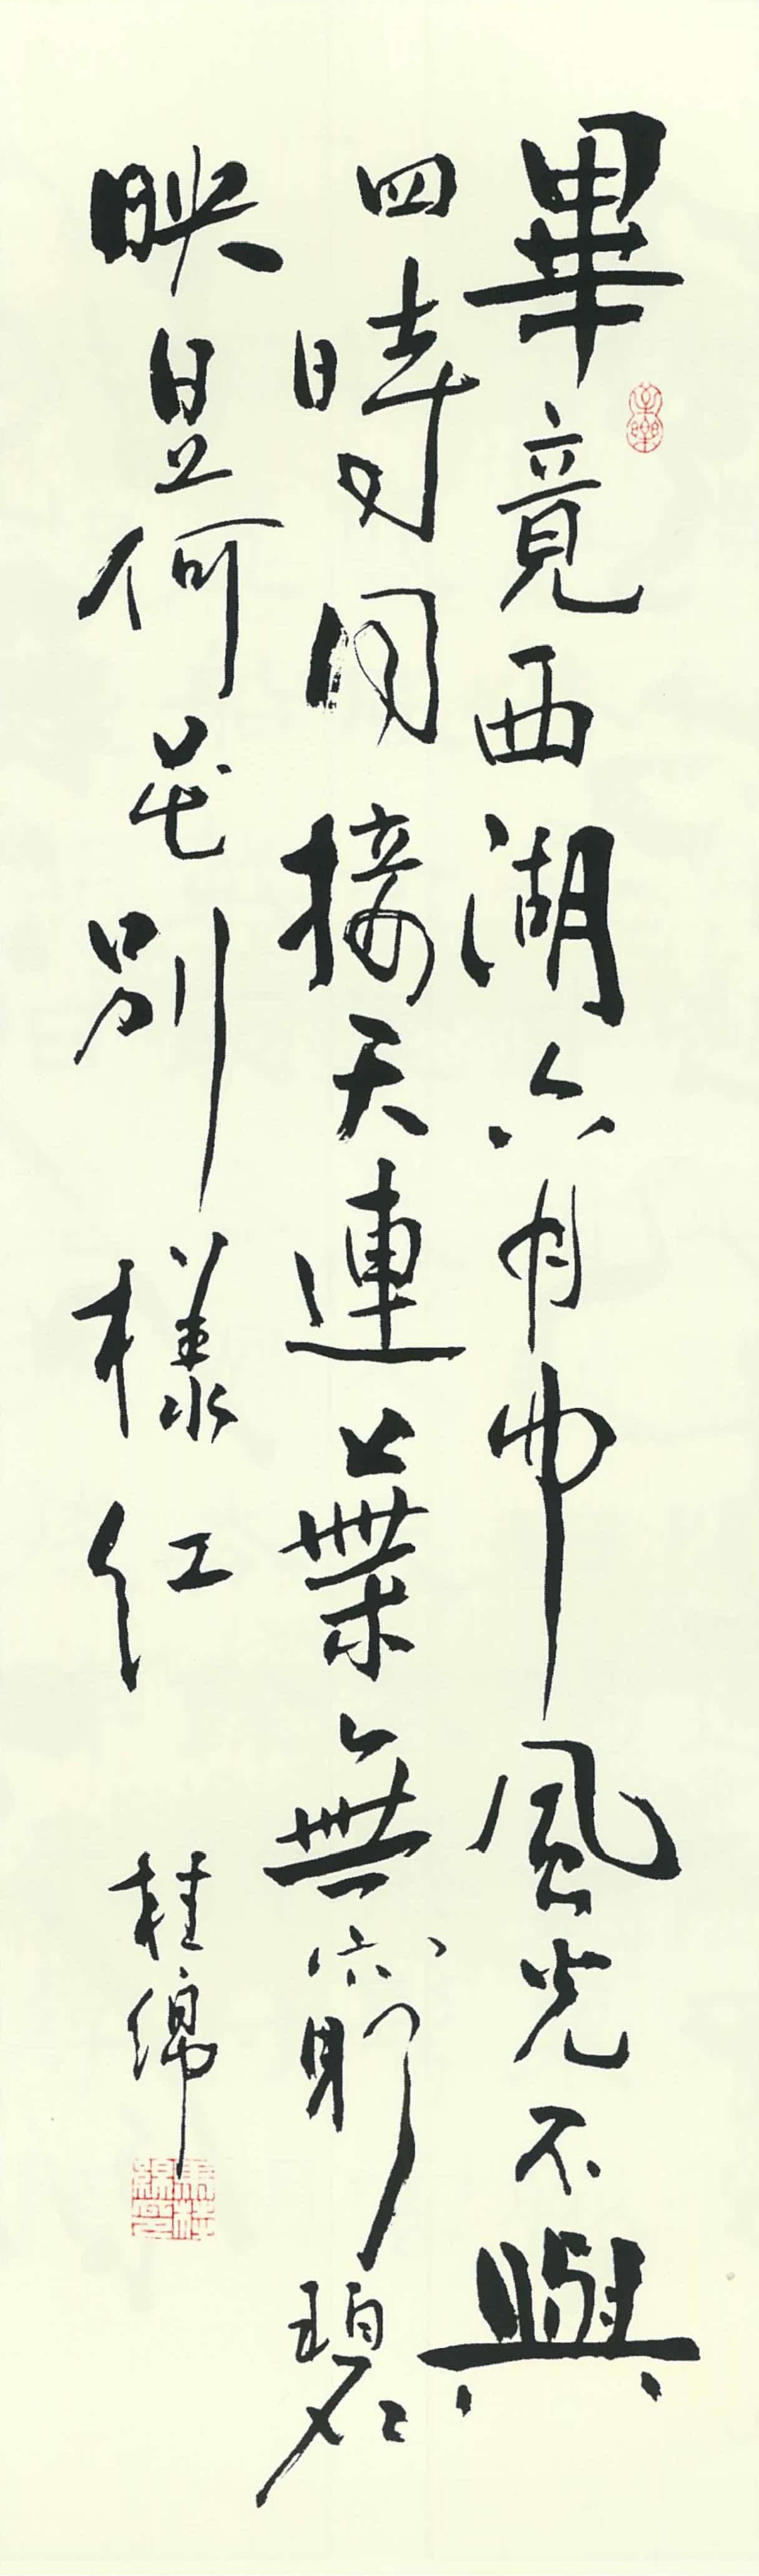 畢竟西湖六月中風光不與
四時同接天連葉無窮碧
映日荷花別樣紅
桂綿